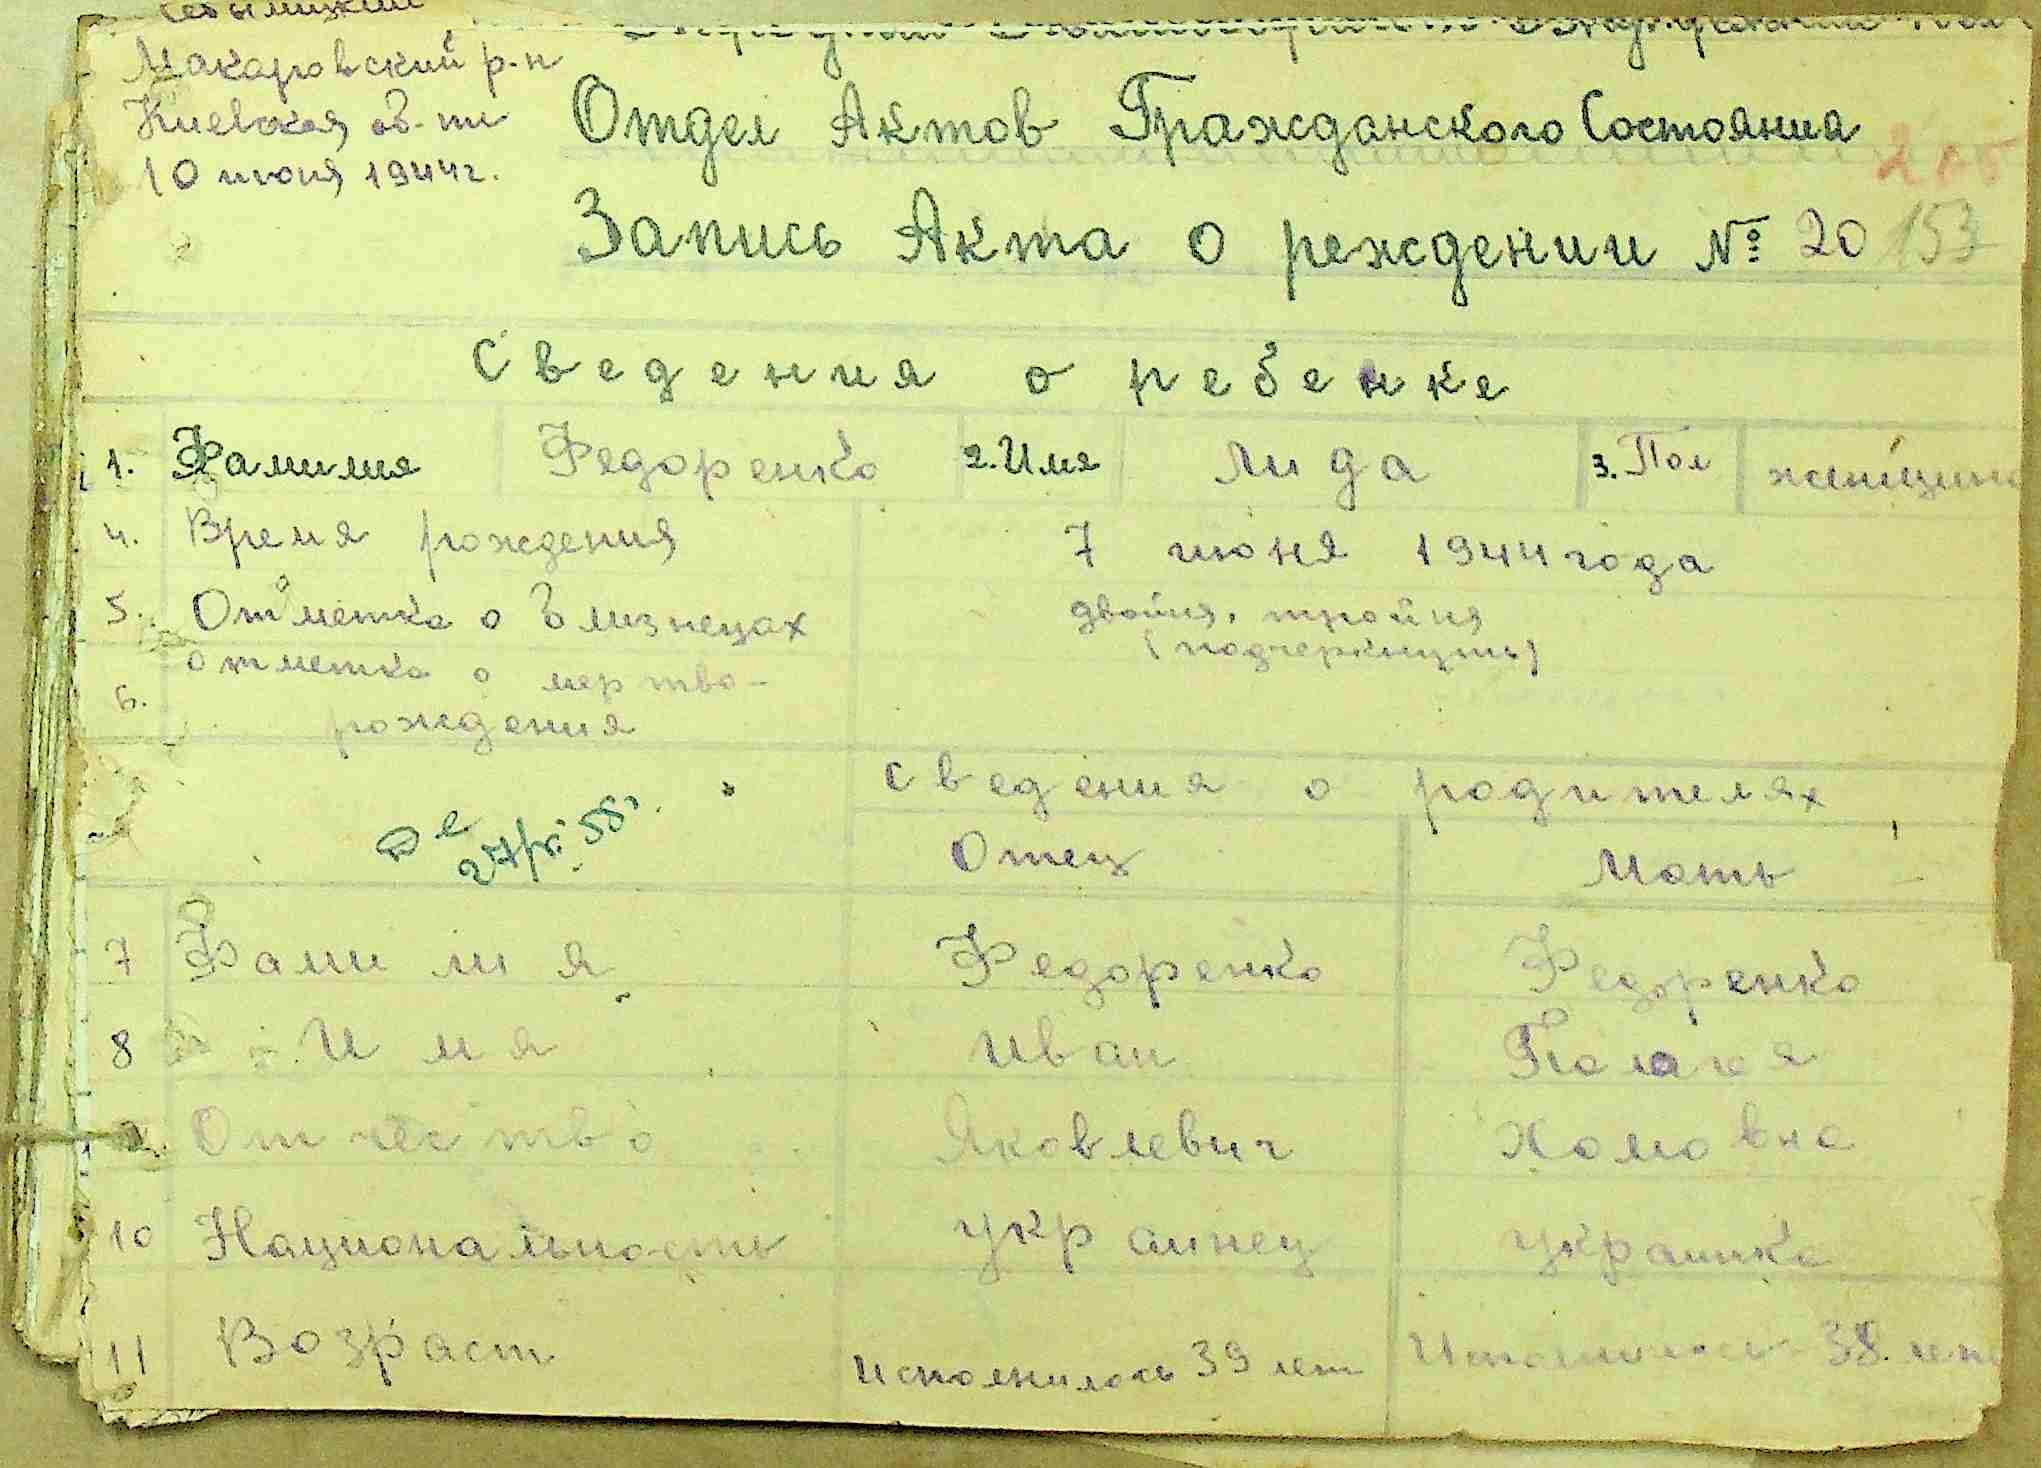 Макаровский р-н
Киевская об-ти
10 июня 1944 г.
Отдел Актов Гражданского Состояния
Запись Акта о режdении № 20 153
Сведения о ребенке
1. Фамилия Федоренко 2. Имя Лида 3. Пол женщина
4. Время рождения 7 июня 1944 года
5. Отметка о близнецах двойня, тройня
(подчеркнуть)
6. отметка о мертво-
рождения
Сведения о родителях
Отец Мать
7 Фамилия Федоренко Федоренко
8 Имя Иван Палагея
Отчество Яковлевич Хомовна
10 Национальность украинец украинка
11 Возраст Исполнилось 39 лет Исполнилось 38 лет